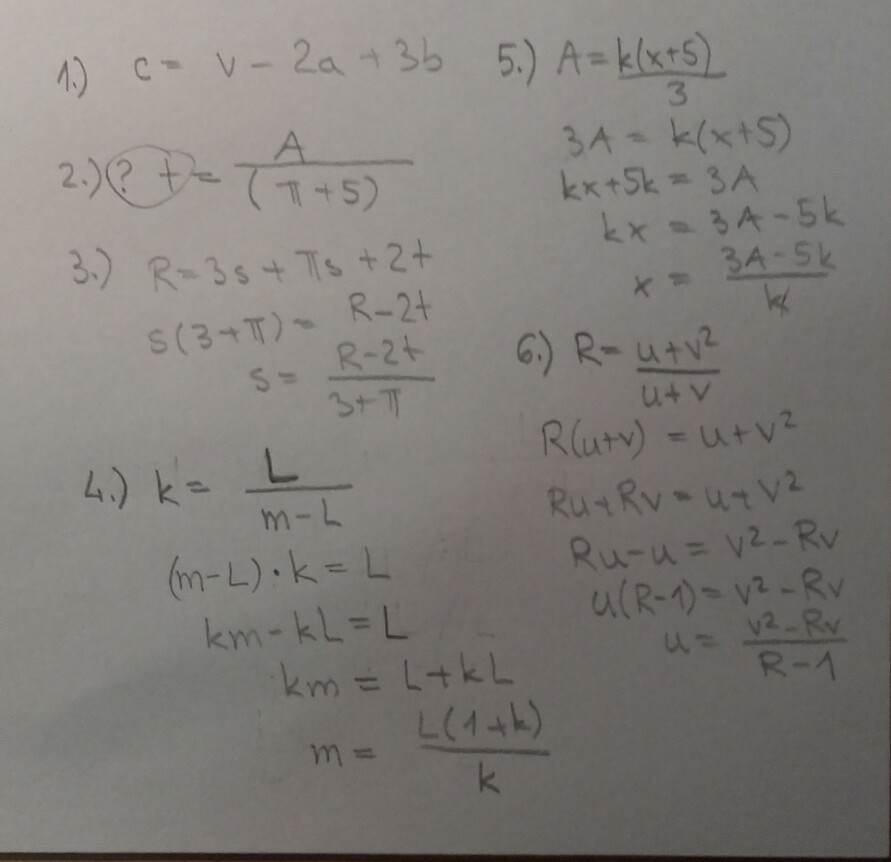 1.) c = v - 2a + 3b
2.) ? t = A / (π + 5)
3.) R = 3s + πs + 2t
s(3+π) = R - 2t
s = R - 2t / 3+π
4.) k = L / m - L
(m-L)·k = L
km - kL = L
km = L + kL
m = L(1+k) / k
5.) A = k(x+5) / 3
3A = k(x+5)
kx + 5k = 3A
kx = 3A - 5k
x = 3A - 5k / k
6.) R = u + v² / u + v
R(u+v) = u + v²
Ru + Rv = u + v²
Ru - u = v² - Rv
u(R-1) = v² - Rv
u = v² - Rv / R - 1